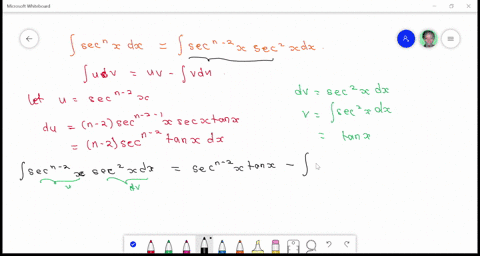 Microsoft Whiteboard
∫ secⁿ x dx = ∫ secⁿ⁻² x sec² x dx.
∫ u dv = uv - ∫ v du.
let u = secⁿ⁻² x
du = (n-2) secⁿ⁻²⁻¹ x sec x tan x
= (n-2) secⁿ⁻² tan x dx
dv = sec² x dx
v = ∫ sec² x dx
= tan x
∫ secⁿ⁻² x sec² x dx = secⁿ⁻² x tan x - ∫
u dv